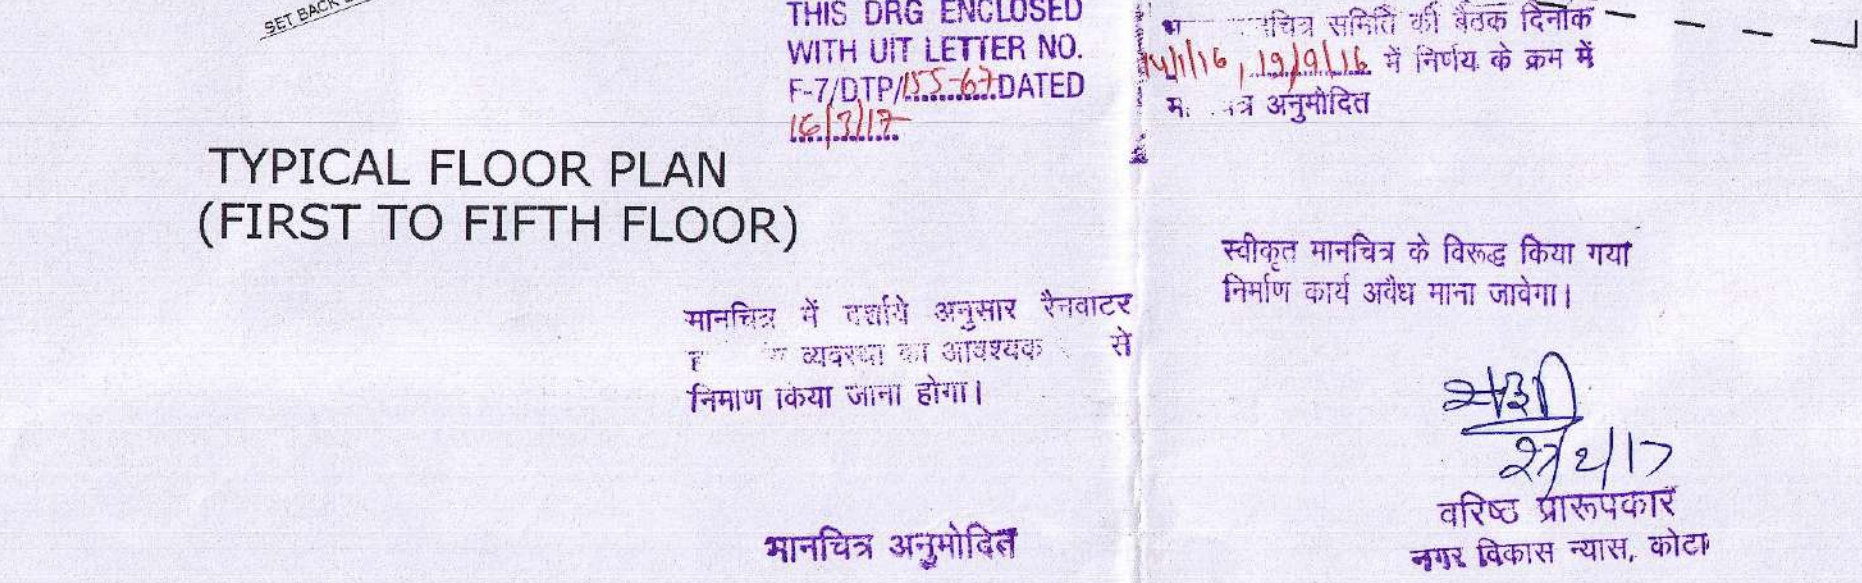 SET BACK
THIS DRG ENCLOSED
WITH UIT LETTER NO.
F-7/DTP/155-67 DATED
16/3/17
समिति की बैठक दिनांक
14/1/16, 19/9/16 में निर्णय के क्रम में
अनुमोदित
TYPICAL FLOOR PLAN
(FIRST TO FIFTH FLOOR)
स्वीकृत मानचित्र के विरूद्ध किया गया
निर्माण कार्य अवैध माना जावेगा।
मानचित्र में दर्शाये अनुसार रैनवाटर
व्यवस्था का आवश्यक से
निर्माण किया जाना होगा।
27/2/17
वरिष्ठ प्रारूपकार
नगर विकास न्यास, कोटा
मानचित्र अनुमोदित